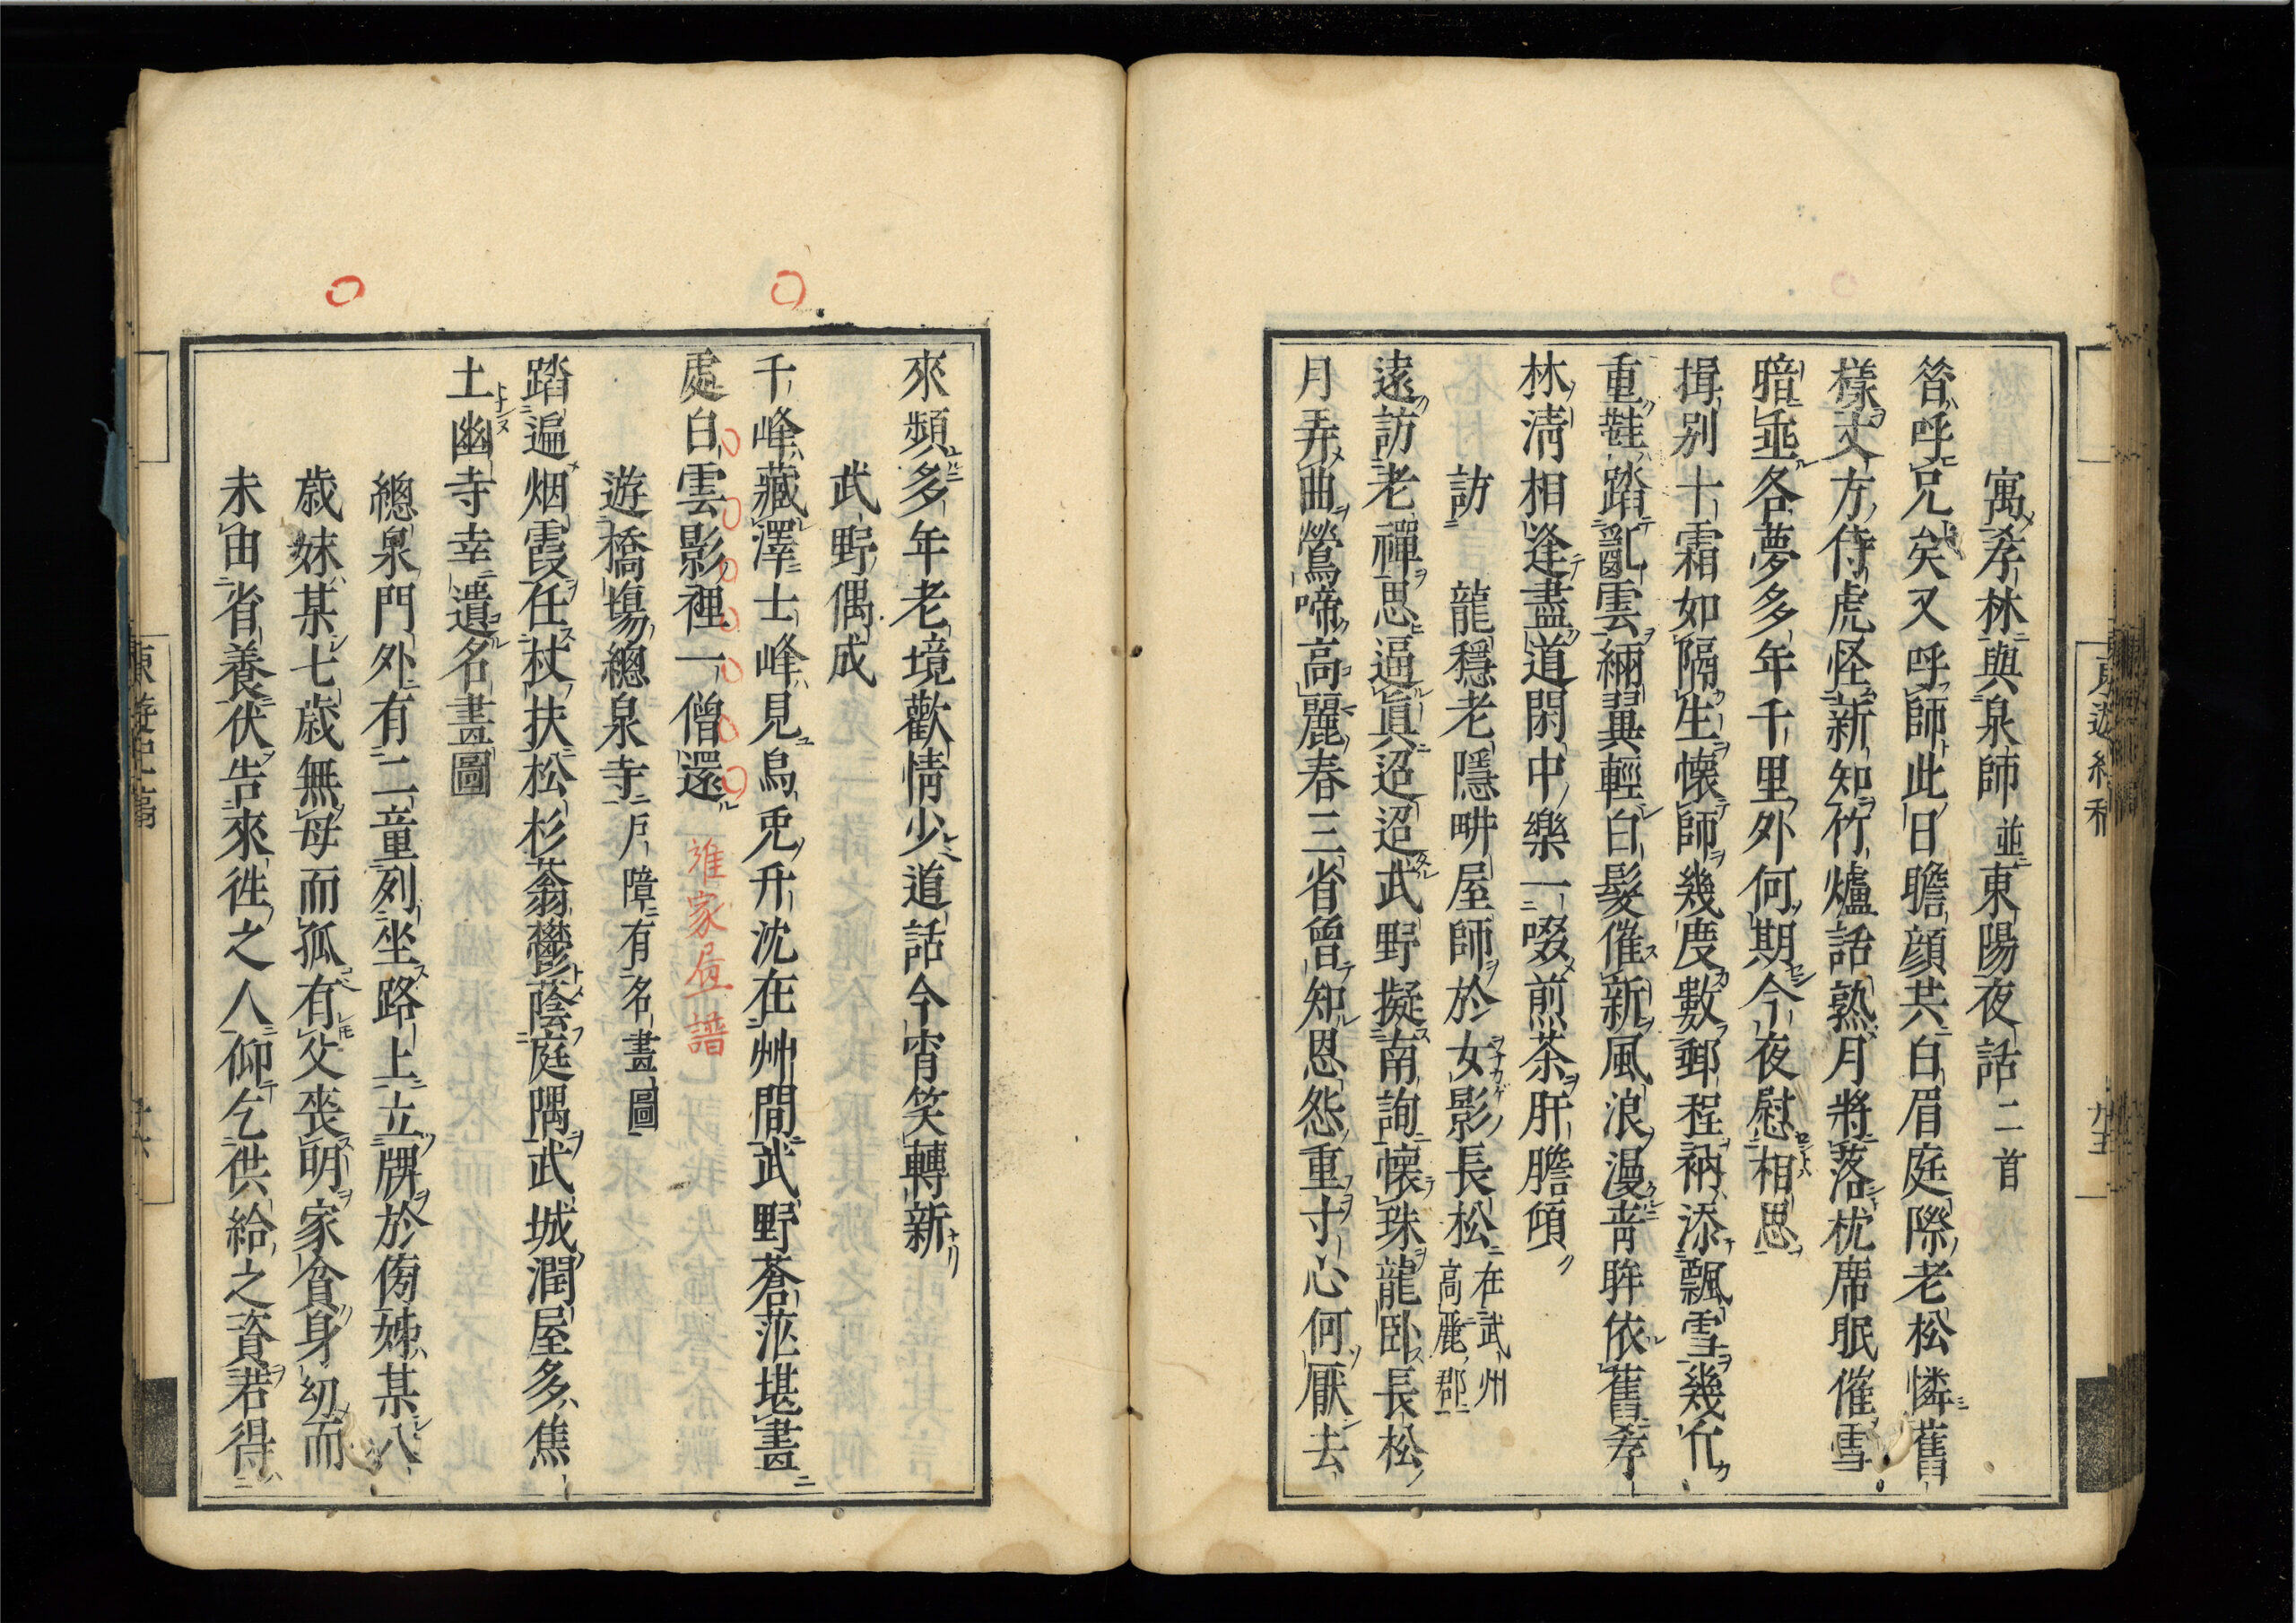 寓孝林與泉師並東陽夜話二首
咎呼兄矣又呼師此日瞻顔共白眉庭際老松憐舊
様丈方侍虎怪新知竹爐話熟月將落枕席眠催雪
暗垂各夢多年千里外何期今夜慰相思
揖別十霜如隔生懐師幾度數郵程衲添飄雪幾斤
重鞋踏亂雲緉翼輕白髮催新風浪漫靑眸依舊孝
林淸相逢盡道閑中樂一啜煎茶肝膽傾
訪龍穩老隱畊屋師於女影長松在武州高麗郡
遠訪老禪思逼眞迢迢武野擬南詢懐珠龍臥長松
月弄曲鶯啼高麗春三省曾知恩怨重寸心何厭去
來頻多年老境歡情少道話今宵笑轉新
武野偶成
千峰藏澤士峰見烏兎升沈在艸間武野蒼茫堪畫
處白雲影裡一僧還
遊橋塲總泉寺戶障有名畫圖
踏遍烟霞任杖扶松杉蓊鬱蔭庭隅武城潤屋多焦
土幽寺幸遺名畫圖
總泉門外有二童列坐路上立牌於傍姊某八
歳妹某七歳無母而孤有父喪明家貧身幼而
未由省養伏告來徃之人仰乞供給之資若得